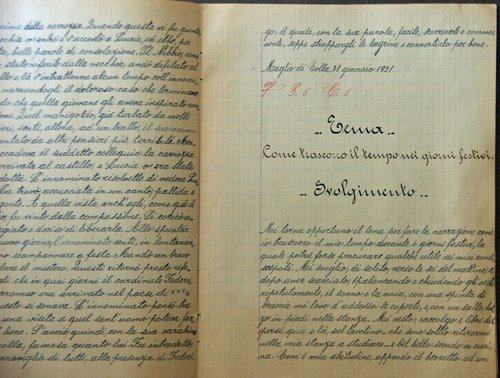 prima della carrozza. Quando questa vi fu giunta,
vecchia v'entrò e s'accostò a Lucia, ed ebbe, per
, belle parole di consolazione. Il Nibbio, come
stato riferito dalla vecchia, andò difilato al
lo e là s'intrattenne alcun tempo coll'innomi
narrandogli il doloroso caso che terminava
do che quella giovane gli aveva inspirato com
ne. Quel manigoldo, già turbato da molti
ieri, sentì, allora, ad un tratto, il suo animo
entato da altri pensieri più terribili. Men
accadeva il suddetto colloquio la carrozza
arrivata al castello, e Lucia v'era stata
dotta. L'innominato risolvette di vedere
La trovò, accucciata in un canto, pallida e
gente. A quella vista anch'egli, come già il
io, fu vinto dalla compassione. Si coricò a
giato e deciso di liberarla. Allo spuntar
nuovo giorno, l'innominato sentì, in lontanan
no scampannare a festa. Mandò un bravo
lare il mistero. Questi ritornò presto rife
di che in quei giorni il cardinale Federi
rromeo era arrivato nel paese di ***
uesto si teneva. L'innominato pensò ch
una visita a quell'sant'uomo poteva far
bene. S'avviò quindi, con la sua carabina
colla, famosa quanto lui. Fu introdotto,
araviglia di tutti, alla presenza di Federi
go, il quale, con la sua parola, facile, scorrevole e commo
vente, seppe strappargli le lagrime e convertirlo pel bene.
Maglio di Colla, 31 gennaio 1921
P. 5 C. 5
Tema
Come trascorro il tempo nei giorni festivi.
Svolgimento
Mi torna opportuno il tema per fare la narrazione come
io trascorro il mio tempo durante i giorni festivi, la
quale potrà forse procurare qualche utile ai miei condi
scepoli. Mi sveglio, di solito, verso le sei del mattino, e,
dopo aver scacciato, spalancando e chiudendo gli occhi
ripetutamente, il sonno e la noia, con una spinta di
braccia mi levo d'addosso le coperte, e, con un salto, bal
zo in piedi nella stanza. Mi vesto; raccolgo i libri di
spersi qua e là sul tavolino - che sono solito ritirarmi
nella mia stanza a studiare - e bel bello scendo in cu
cina. Com'è mia abitudine, appendo il berretto ad un